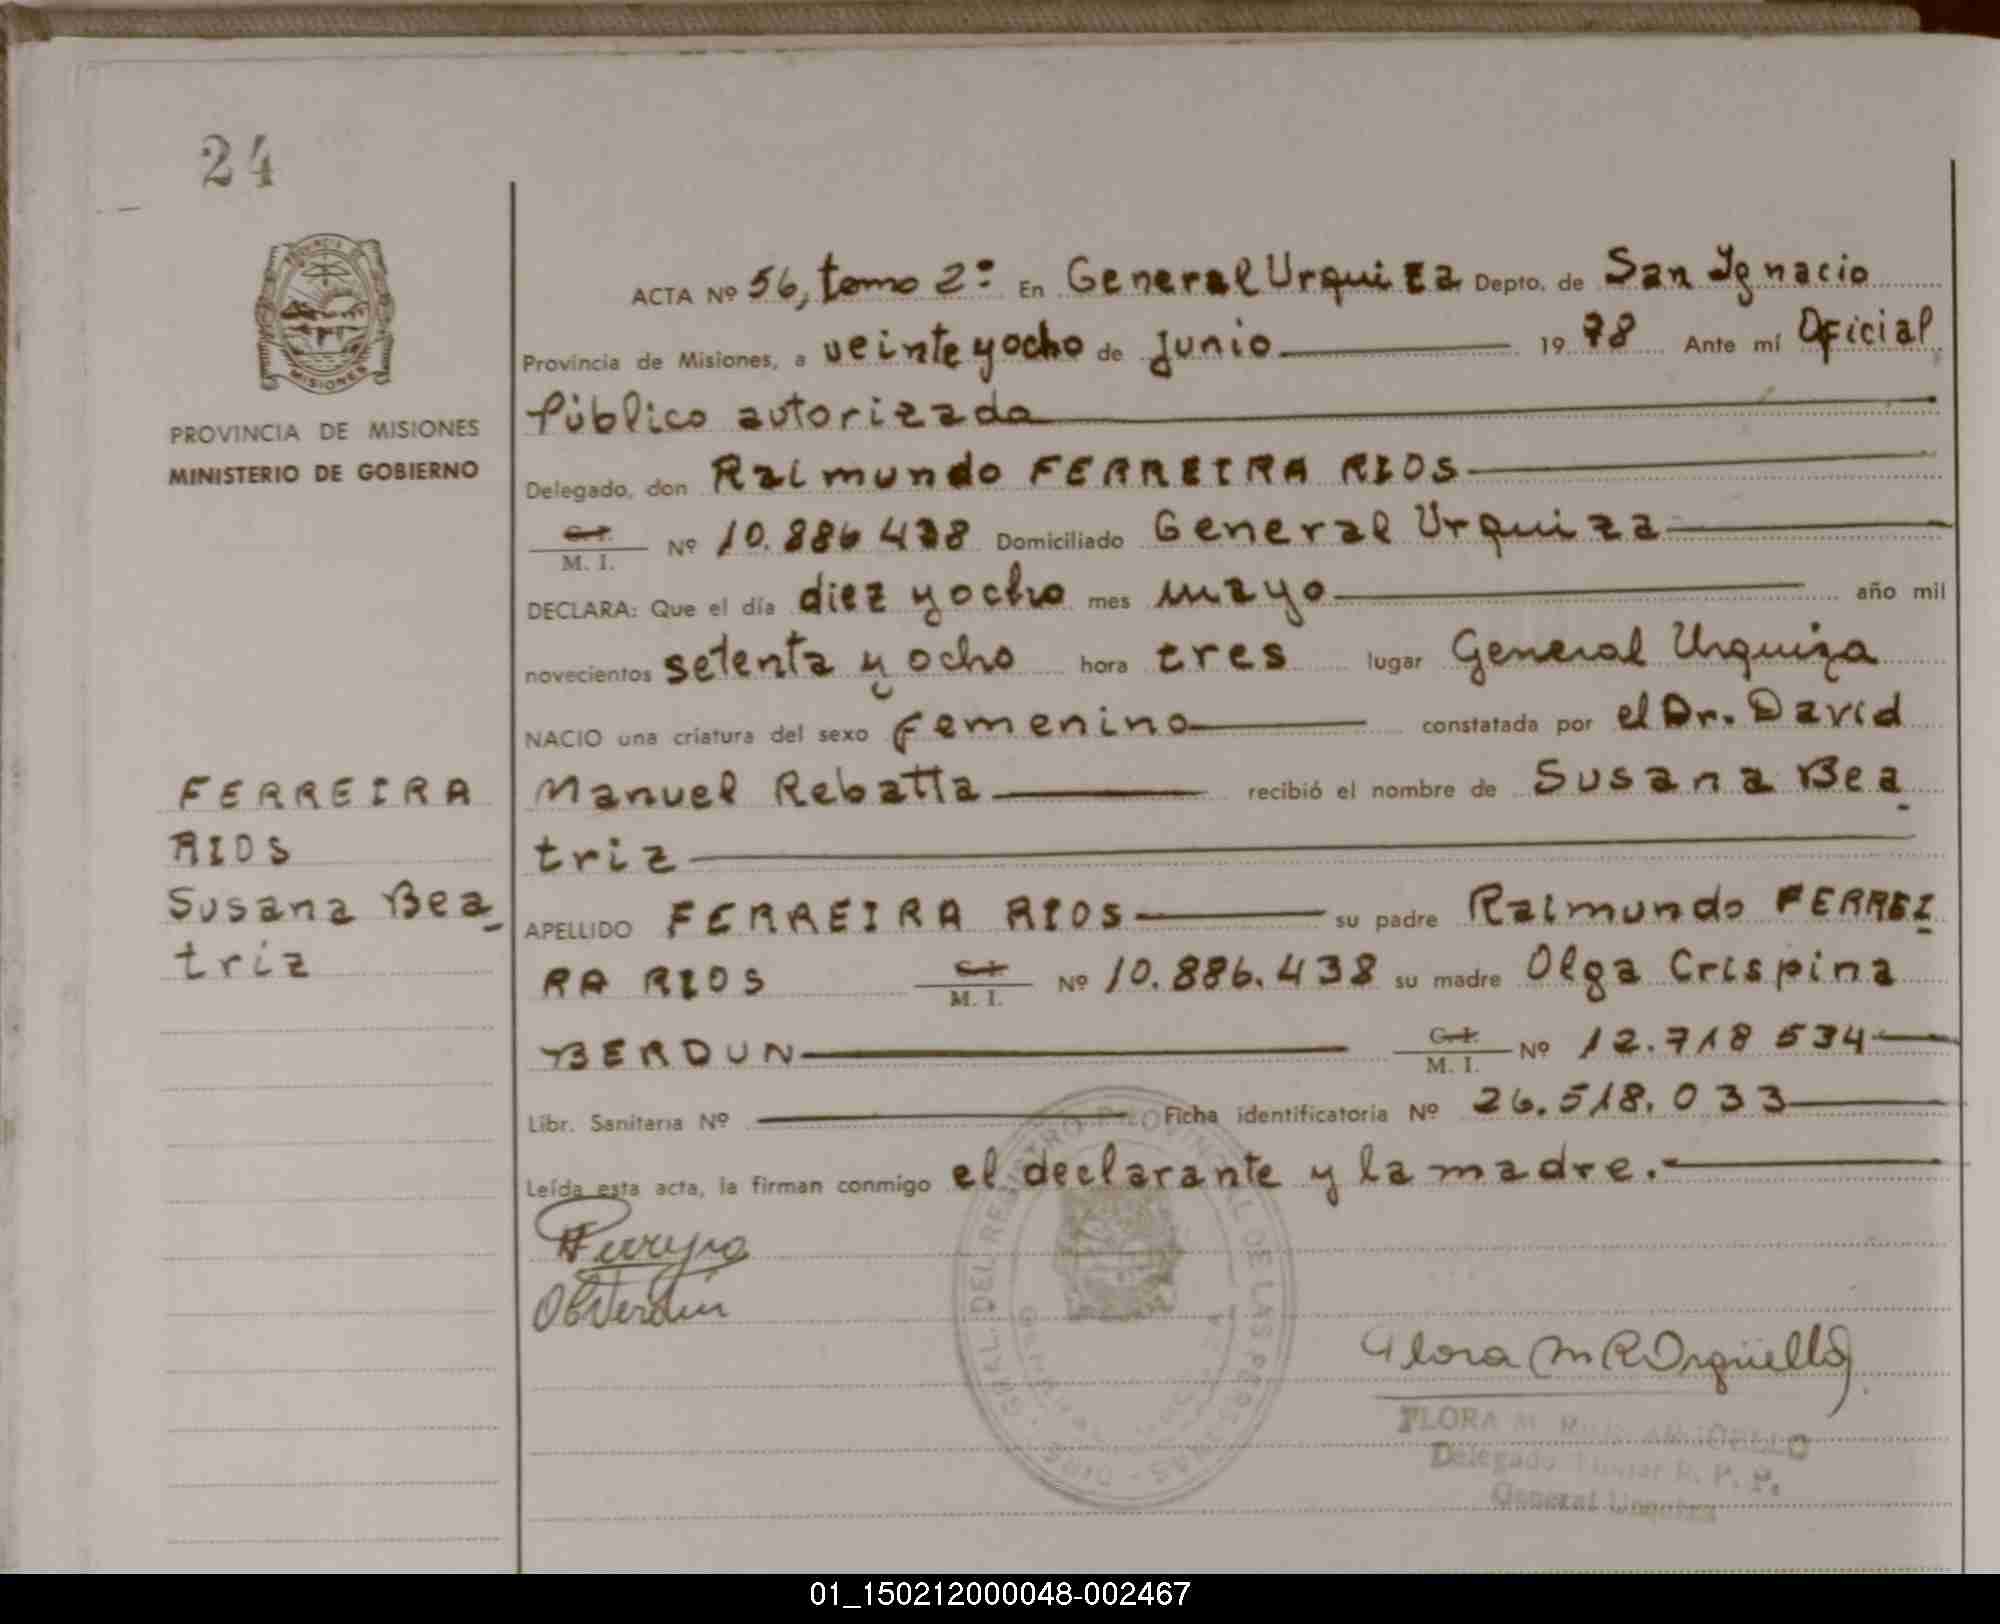 24
PROVINCIA DE MISIONES
MINISTERIO DE GOBIERNO
FERREIRA
RIOS
Susana Bea_
triz
ACTA Nº 56, tomo 2º En General Urquiza Depto. de San Ignacio
Provincia de Misiones, a veinte y ocho de junio 19 78 Ante mí Oficial
Público autorizado
Delegado, don Raimundo FERREIRA RIOS
C.I. M. I. Nº 10.886 438 Domiciliado General Urquiza
DECLARA: Que el día diez y ocho mes mayo año mil
novecientos setenta y ocho hora tres lugar General Urquiza
NACIO una criatura del sexo femenino constatada por el Dr. David
Manuel Rebatta recibió el nombre de Susana Bea_
triz
APELLIDO FERREIRA RIOS su padre Raimundo FERREI_
RA RIOS C.I. M. I. Nº 10.886.438 su madre Olga Crispina
BERDUN C.I. M. I. Nº 12.718 534
Libr. Sanitaria Nº Ficha identificatoria Nº 26.518.033
Leída esta acta, la firman conmigo el declarante y la madre.
Flora M R Orguello
FLORA M.
Delegado Titular R. P. P.
General Urquiza
01_150212000048-002467